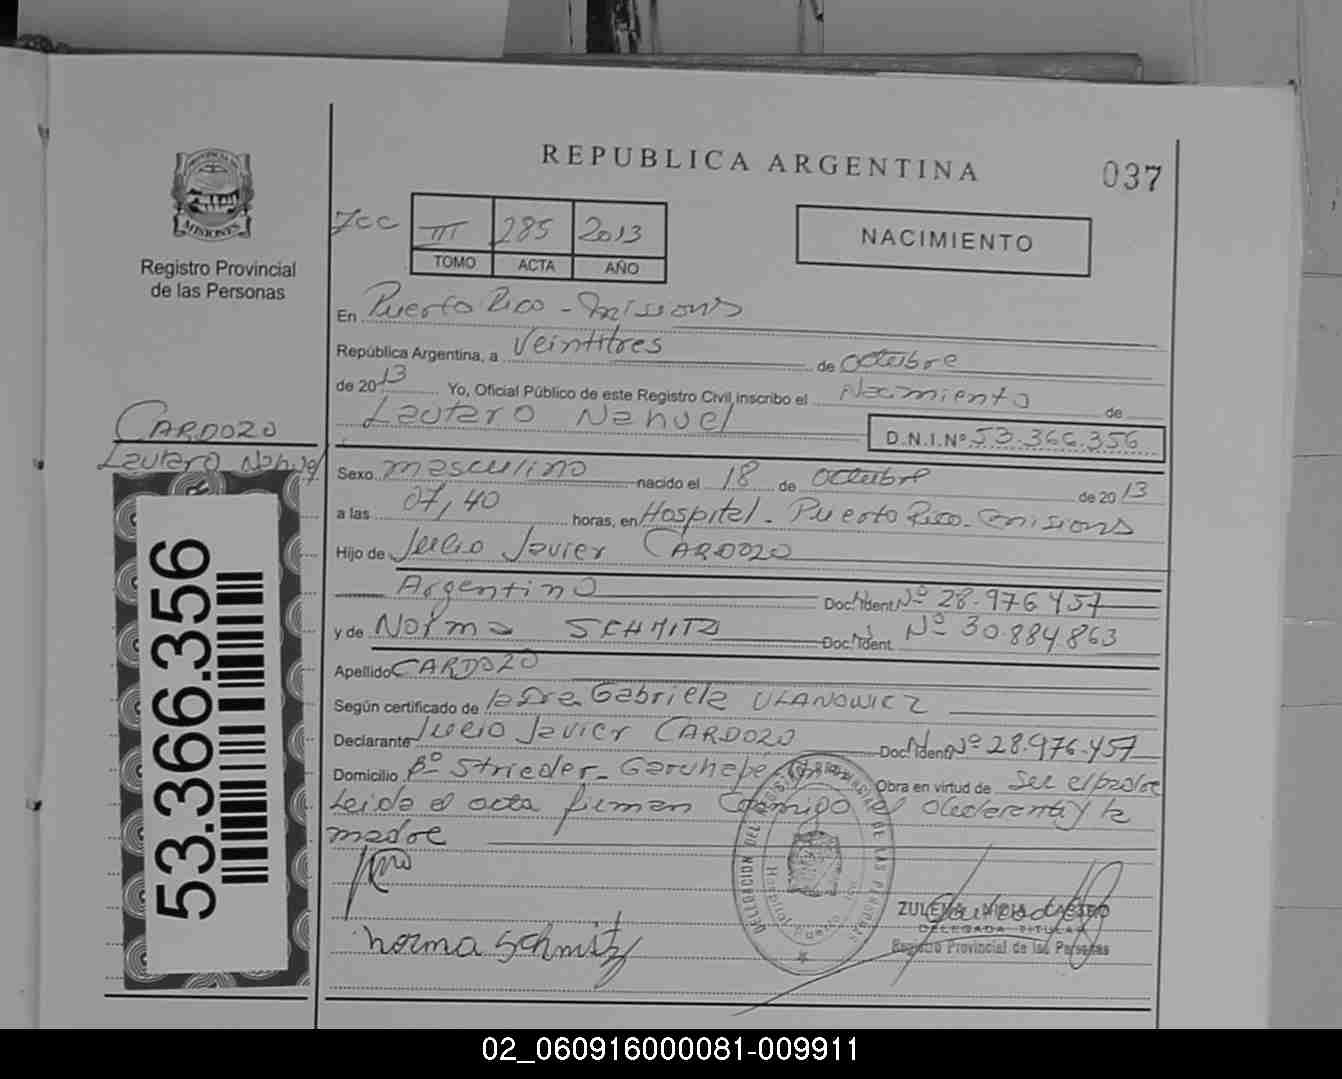 REPUBLICA ARGENTINA
037
Registro Provincial
de las Personas
III 285 2013
TOMO ACTA AÑO
NACIMIENTO
En Puerto Rico - Misiones
República Argentina, a Veintitres de octubre
de 2013 Yo, Oficial Público de este Registro Civil inscribo el Nacimiento de
Lautaro Nahuel
D.N.I.Nº 53.366.356
CARDOZO
Lautaro Nahuel
53.366.356
Sexo masculino nacido el 18 de octubre de 2013
a las 07,40 horas, en Hospital - Puerto Rico - Misiones
Hijo de Julio Javier CARDOZO
Argentino Doc. Ident. Nº 28.976.457
y de Norma SCHMITZ Doc. Ident. Nº 30.884.863
Apellido CARDOZO
Según certificado de la Dra. Gabriela ULANOWICZ
Declarante Julio Javier CARDOZO Doc. Ident. Nº 28.976.457
Domicilio Bº Strieder - Garuhapé Obra en virtud de ser el padre
Leida el acta firman conmigo el declarante y la
madre
Norma Schmitz
ZULEMA CASTRO
DELEGADA TITULAR
Registro Provincial de las Personas
02_060916000081-009911